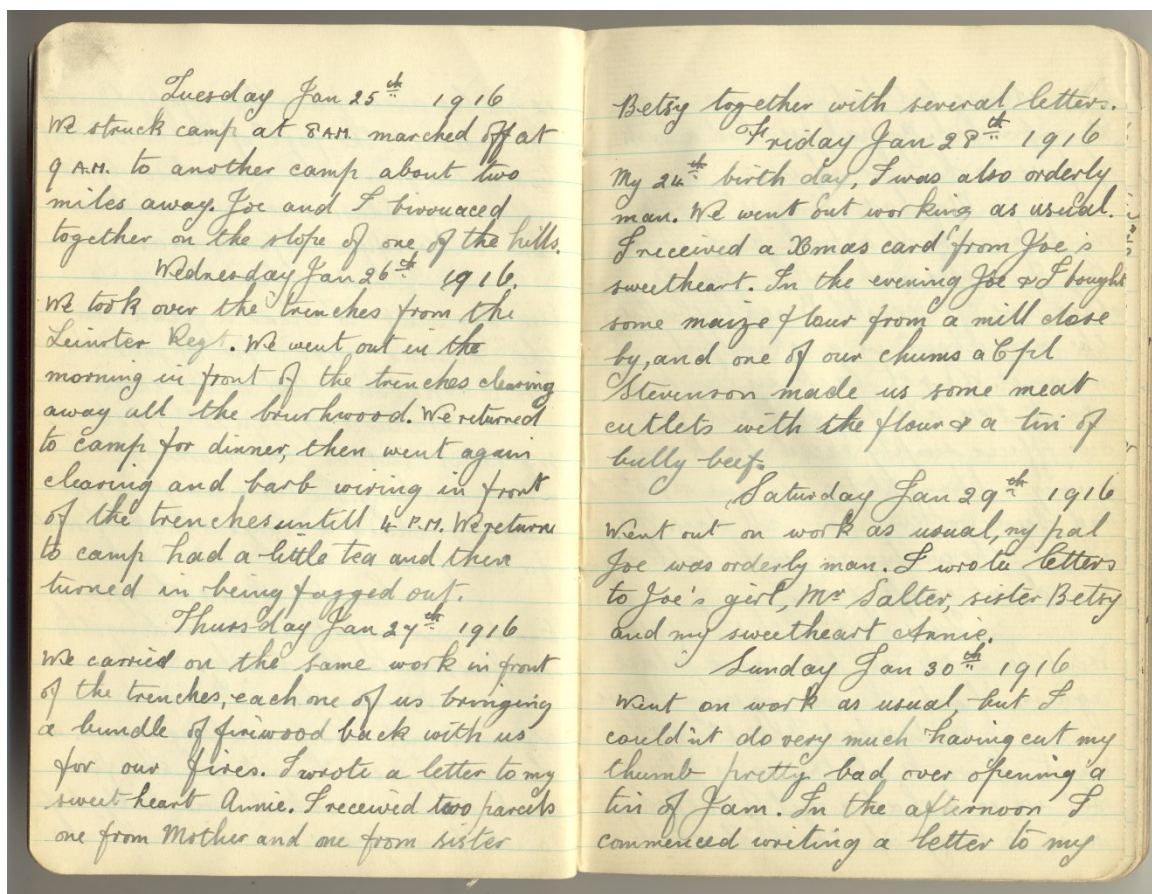 Tuesday Jan 25th 1916
We struck camp at 8 A.M. marched off at
9 A.M. to another camp about two
miles away. Joe and I bivouaced
together on the slope of one of the hills.
Wednesday Jan 26th 1916.
We took over the trenches from the
Leinster Regt. We went out in the
morning in front of the trenches clearing
away all the brushwood. We returned
to camp for dinner, then went again
clearing and barb wiring in front
of the trenches untill 4 P.M. We return
to camp had a little tea and then
turned in being fagged out.
Thursday Jan 27th 1916
We carried on the same work in front
of the trenches, each one of us bringing
a bundle of firewood back with us
for our fires. I wrote a letter to my
sweetheart Annie. I received two parcels
one from Mother and one from sister
Betsy together with several letters.
Friday Jan 28th 1916
My 24th birth day, I was also orderly
man. We went out working as usual.
I received a Xmas card from Joe's
sweetheart. In the evening Joe & I bought
some maize flour from a mill close
by, and one of our chums a Cpl
Stevenson made us some meat
cutlets with the flour & a tin of
bully beef.
Saturday Jan 29th 1916
Went out on work as usual, my pal
Joe was orderly man. I wrote letters
to Joe's girl, Mr Salter, sister Betsy
and my sweetheart Annie.
Sunday Jan 30th 1916
Went on work as usual, but I
could'nt do very much having cut my
thumb pretty bad over opening a
tin of Jam. In the afternoon I
commenced writing a letter to my